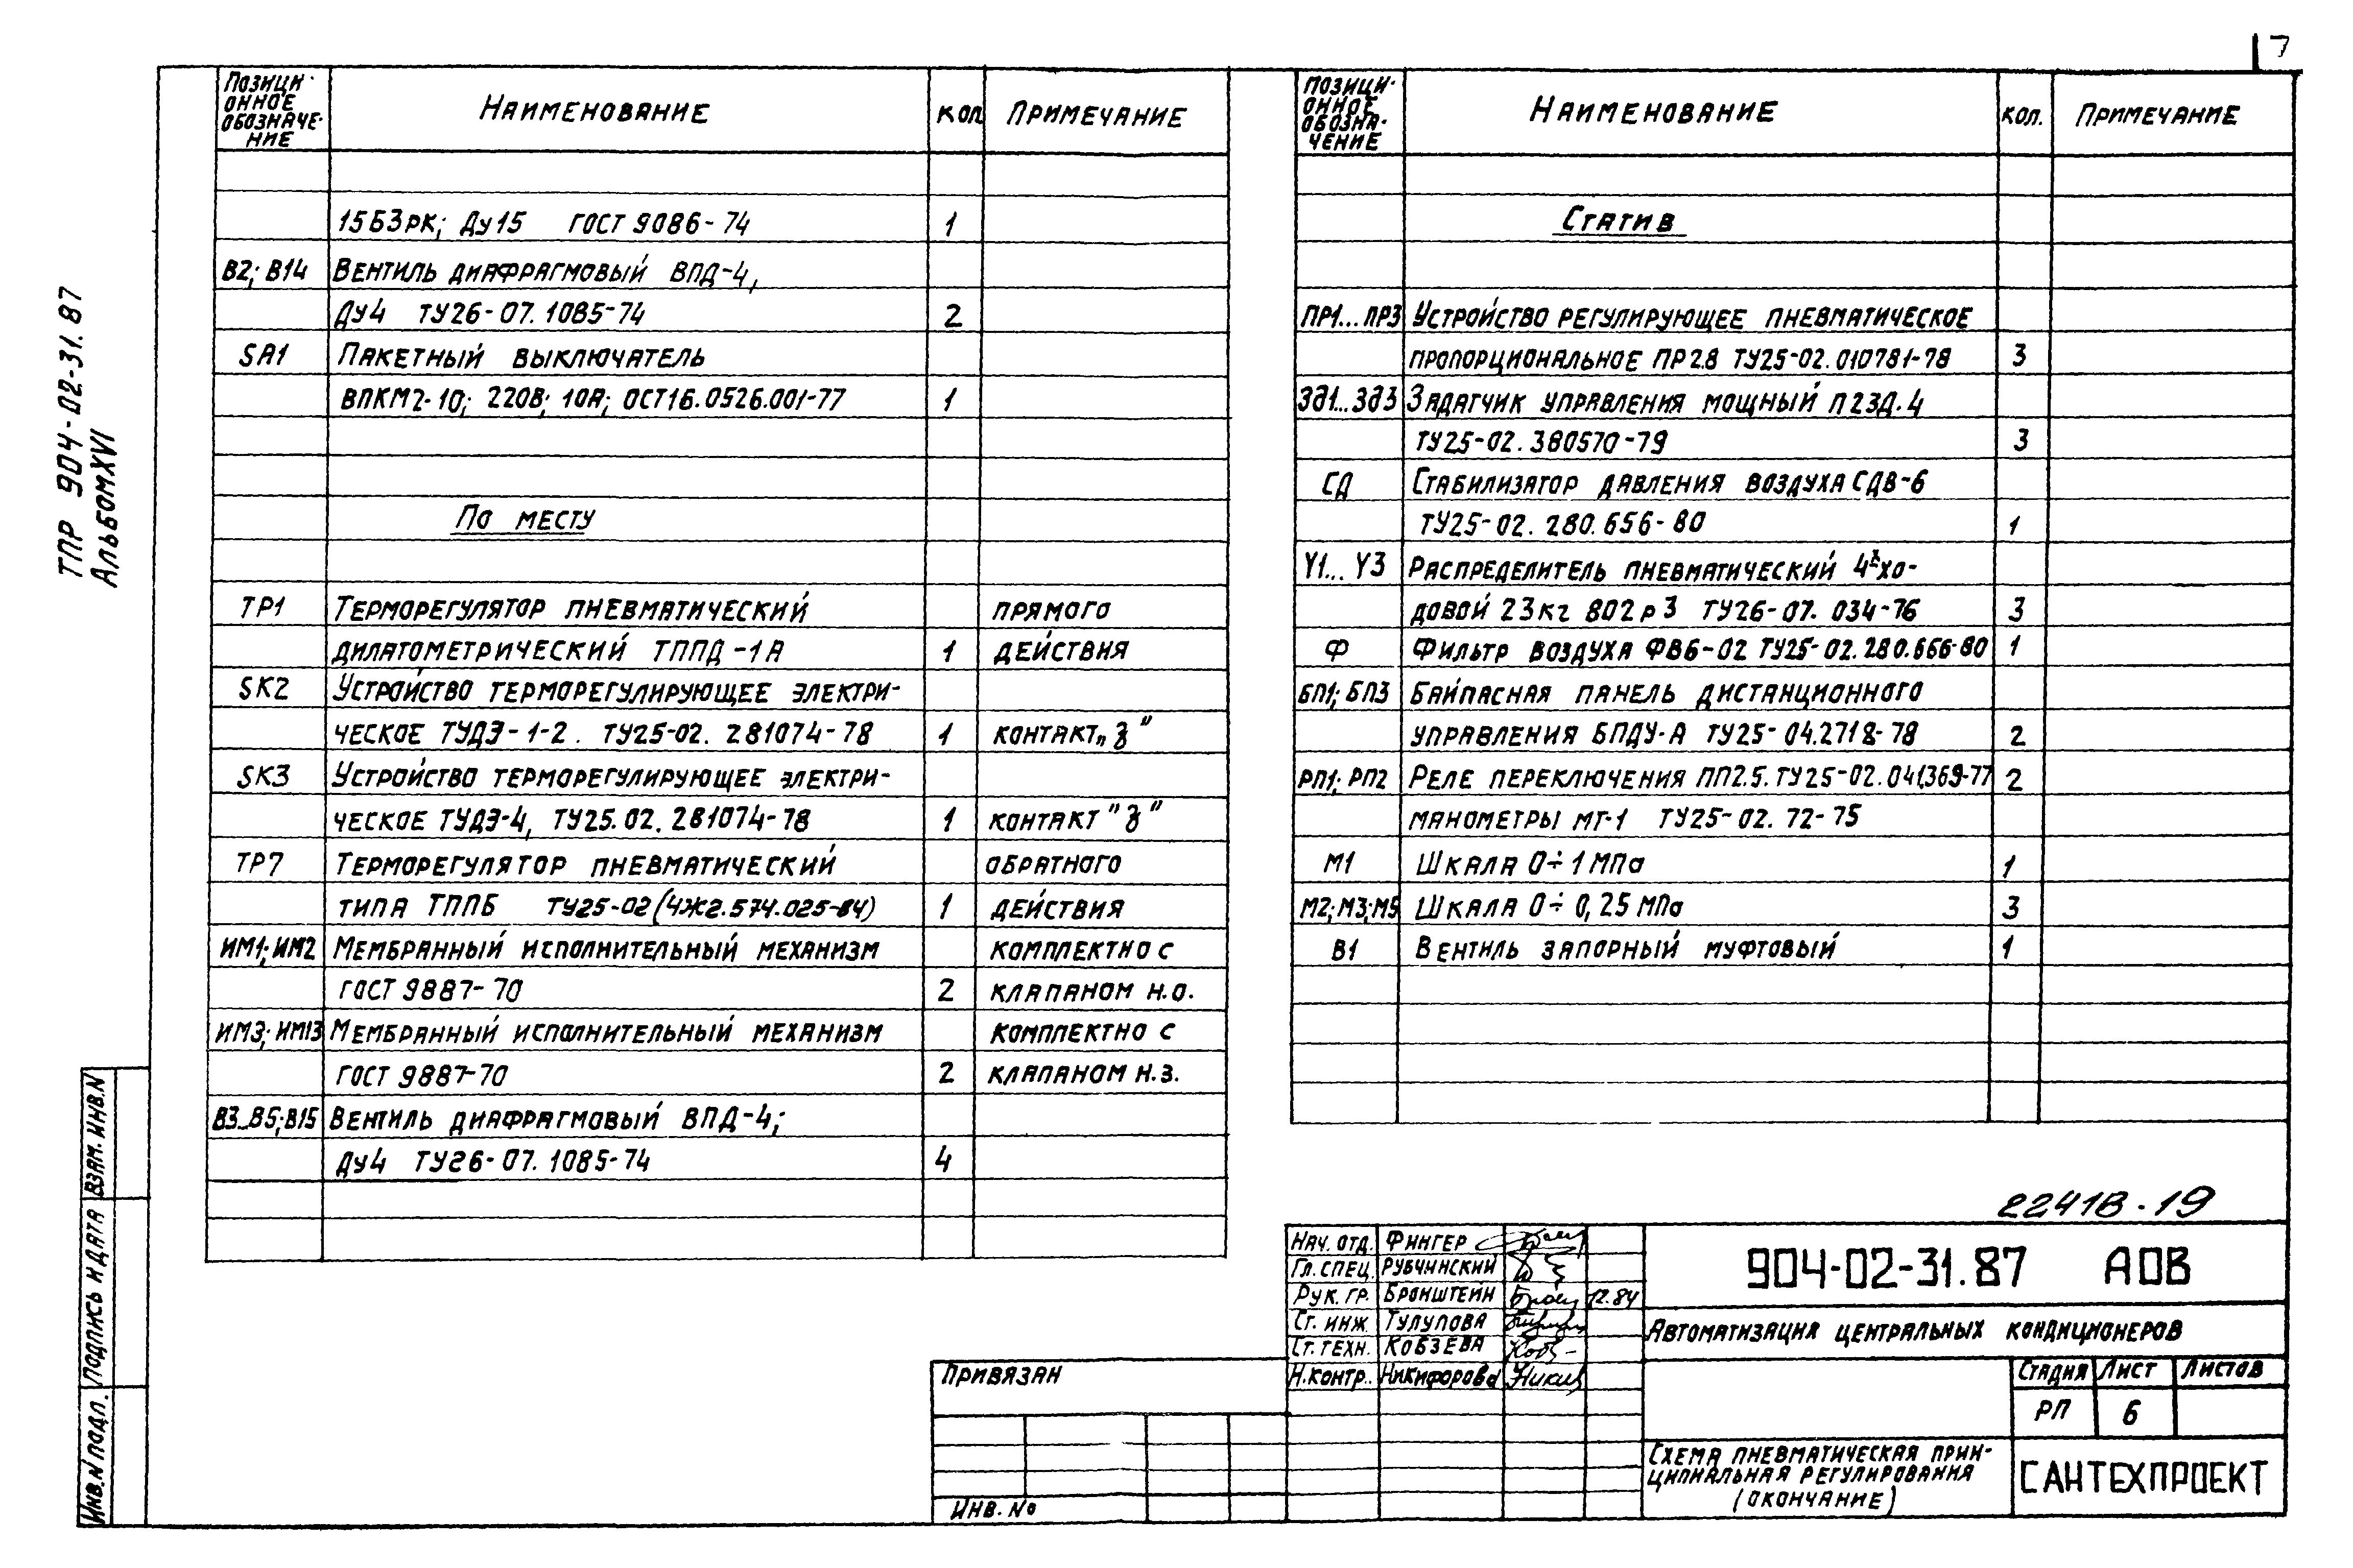 7
ТПР 904-02-31.87
Альбом XVI
Позици-
онное
обозначе-
ние
Наименование
Кол
Примечание
15Б3рк; Ду15 ГОСТ 9086-74 1
В2; В14 Вентиль диафрагмовый ВПД-4,
Ду4 ТУ26-07.1085-74 2
SA1 Пакетный выключатель
ВПКМ2-10; 220В; 10А; ОСТ16.0526.001-77 1
По месту
ТР1 Терморегулятор пневматический прямого
дилатометрический ТППД-1А 1 действия
SK2 Устройство терморегулирующее электри-
ческое ТУДЭ-1-2. ТУ25-02.281074-78 1 контакт „З"
SK3 Устройство терморегулирующее электри-
ческое ТУДЭ-4, ТУ25.02.281074-78 1 контакт "З"
ТР7 Терморегулятор пневматический обратного
типа ТППБ ТУ25-02(4Ж2.574.025-84) 1 действия
ИМ1; ИМ2 Мембранный исполнительный механизм комплектно с
ГОСТ 9887-70 2 клапаном н.о.
ИМ3; ИМ13 Мембранный исполнительный механизм комплектно с
ГОСТ 9887-70 2 клапаном н.з.
В3...В5; В15 Вентиль диафрагмовый ВПД-4;
Ду4 ТУ26-07.1085-74 4
Позици-
онное
обозна-
чение
Наименование
Кол.
Примечание
Статив
ПР1...ПР3 Устройство регулирующее пневматическое
пропорциональное ПР2.8 ТУ25-02.010781-78 3
Зд1...Зд3 Задатчик управления мощный П23Д.4
ТУ25-02.380570-79 3
СД Стабилизатор давления воздуха СДВ-6
ТУ25-02.280.656-80 1
Y1...Y3 Распределитель пневматический 4х хо-
довой 23кч 802р3 ТУ26-07.034-76 3
Ф Фильтр воздуха ФВ6-02 ТУ25-02.280.666-80 1
БП1; БП3 Байпасная панель дистанционного
управления БПДУ-А ТУ25-04.2718-78 2
РП1; РП2 Реле переключения ПП2.5. ТУ25-02.041369-77 2
манометры МТ-1 ТУ25-02.72-75
М1 Шкала 0÷1 МПа 1
М2; М3; М5 Шкала 0÷0,25 МПа 3
В1 Вентиль запорный муфтовый 1
22418-19
Нач. отд. Фингер
Гл. спец. Рубчинский
Рук. гр. Бронштейн 12.84
Ст. инж. Тулупова
Ст. техн. Кобзева
Н. контр. Никифорова
904-02-31.87 АОВ
Автоматизация центральных кондиционеров
Стадия Лист Листов
РП 6
Схема пневматическая прин-
ципиальная регулирования
(окончание)
САНТЕХПРОЕКТ
Привязан
Инв. №
Взам. инв. N
Подпись и дата
Инв. N подл.